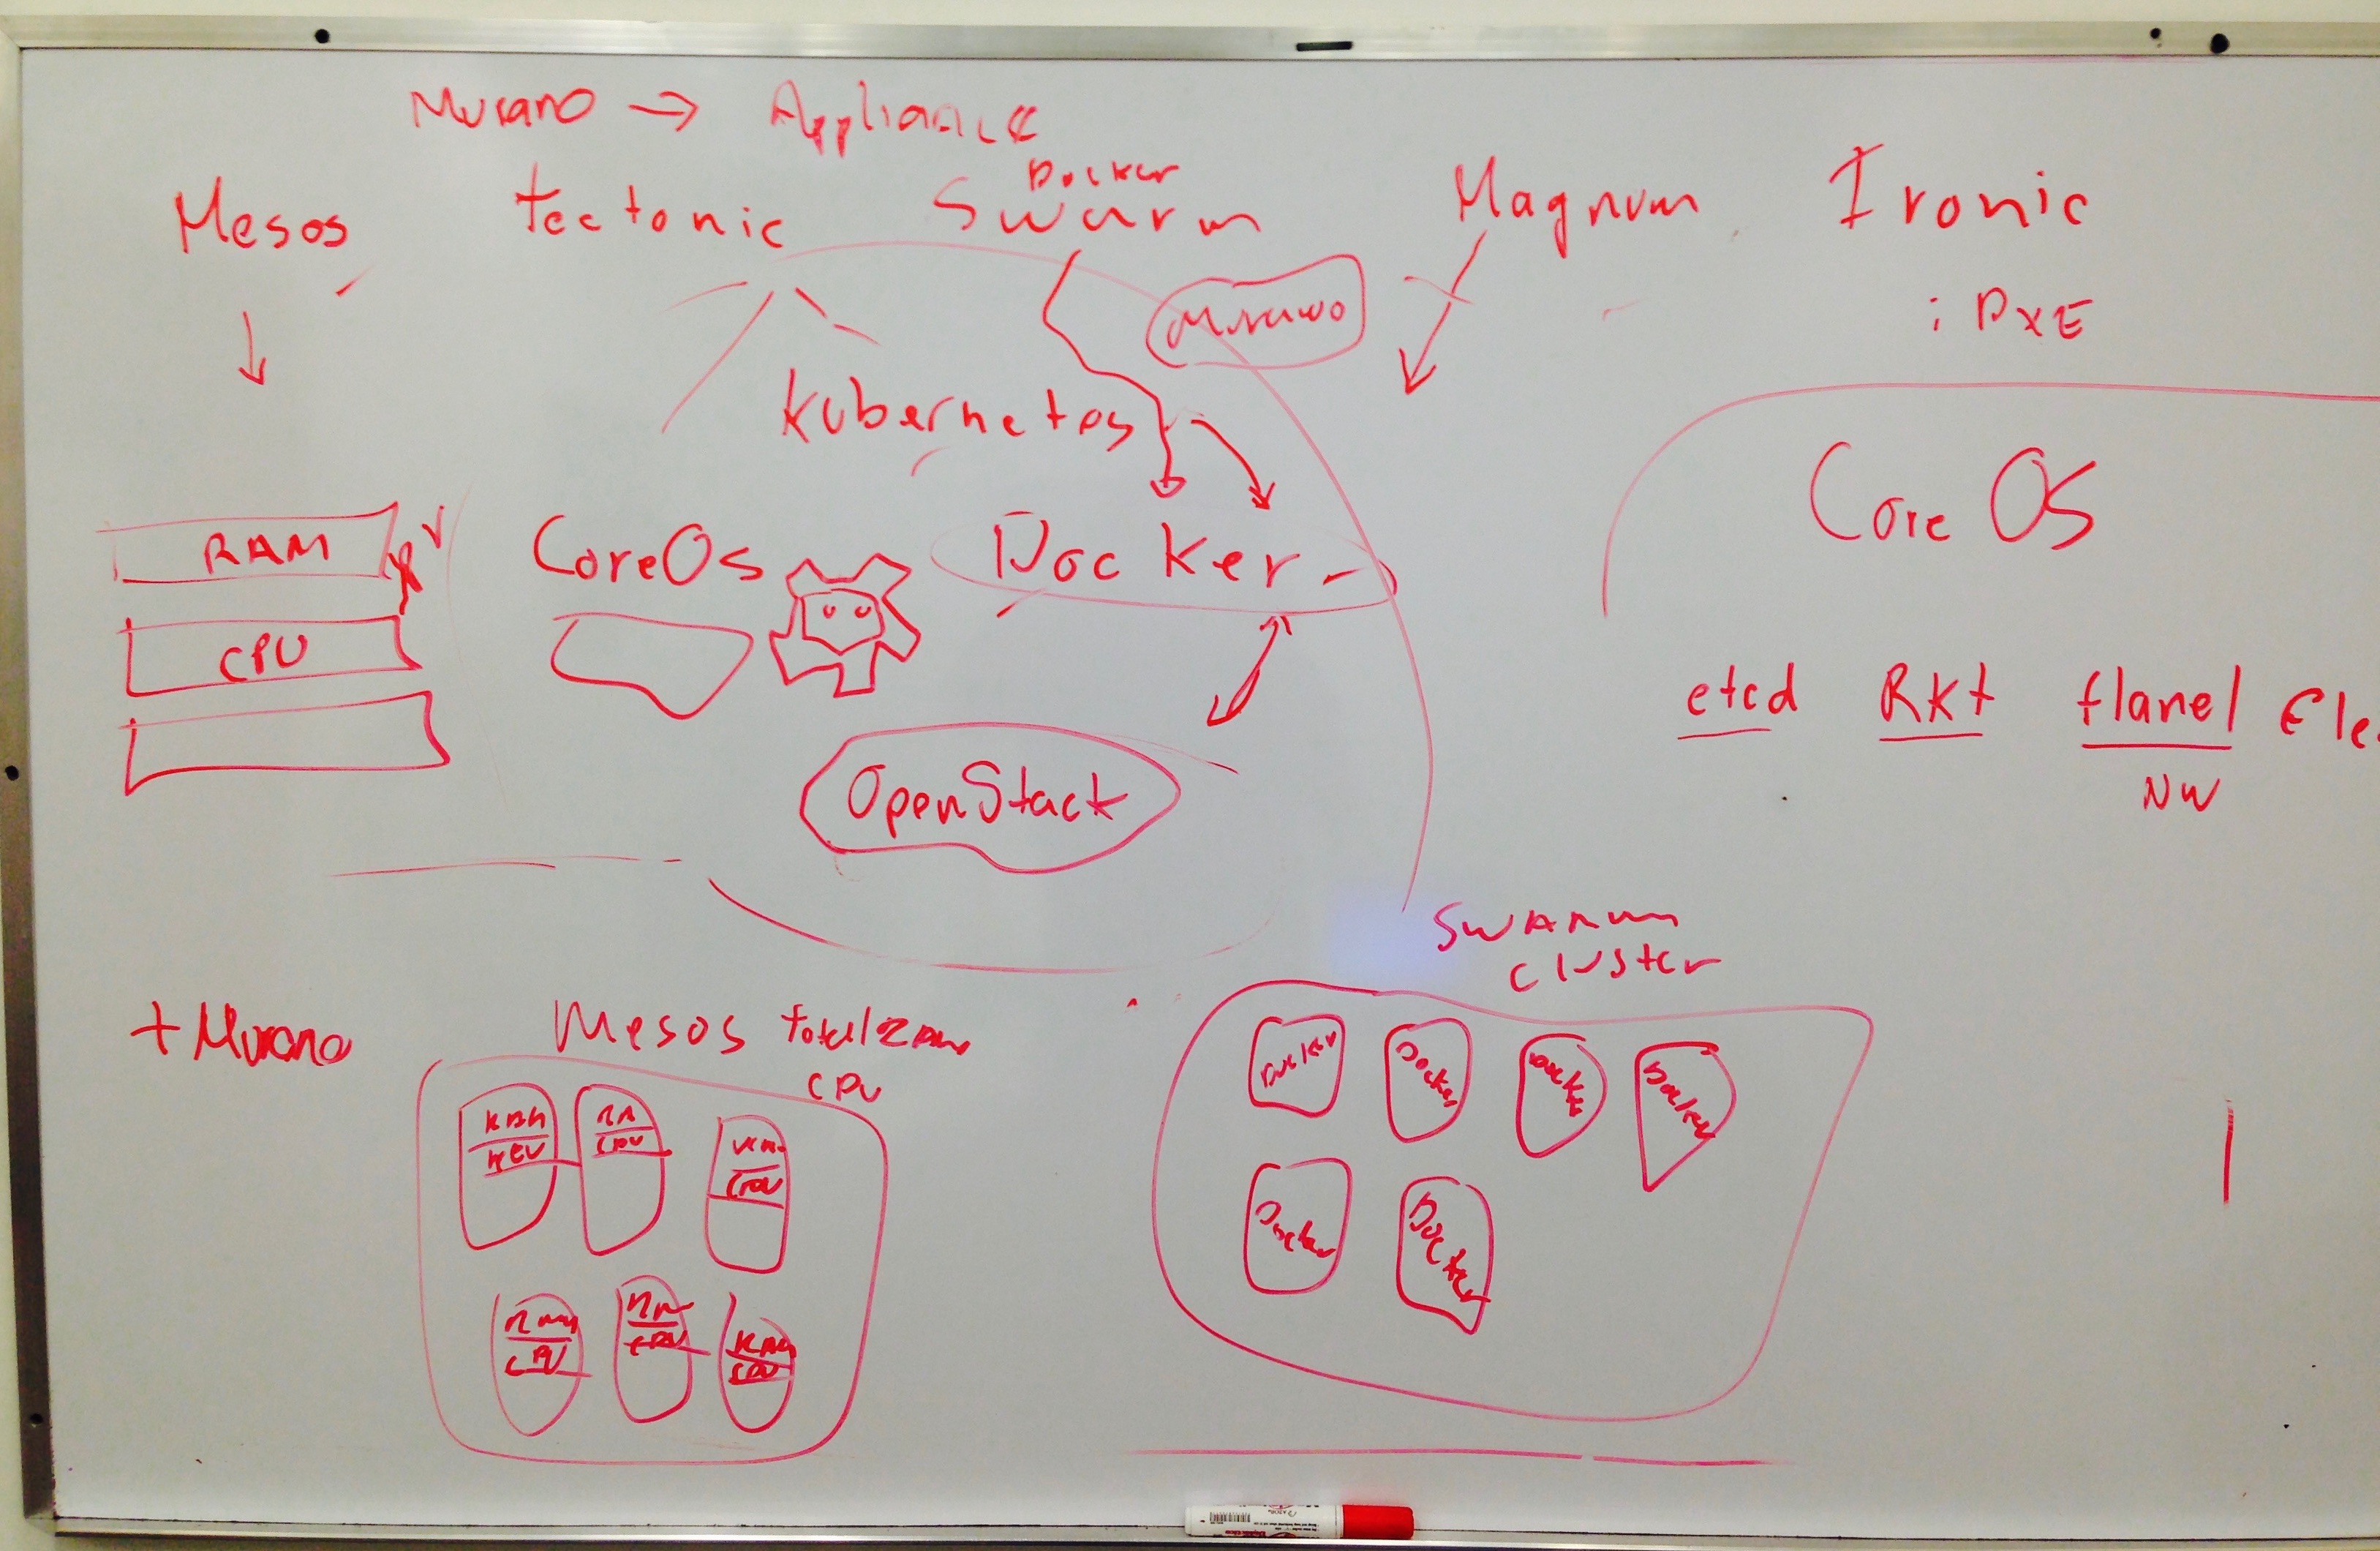 Murano → Appliance
Mesos
tectonic
Docker
Swarm
Magnum
Ironic
Murano
iPXE
Kubernetes
Core OS
RAM
CoreOs
Docker
CPU
etcd Rkt flanel Fle
NW
OpenStack
Swarm
cluster
+ Murano
Mesos total RAM
CPU
RAM
CPU
RA
CPU
RAM
CPU
RAM
CPU
RA
CPU
RAM
CPU
Docker
Docker
Docker
Docker
Docker
Docker